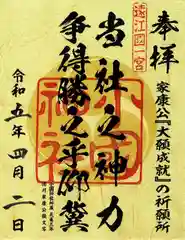 奉拝
遠江國一宮
家康公『大願成就』の祈願所
当社之神力
争得勝之乎
小國神社
令和五年四月二日